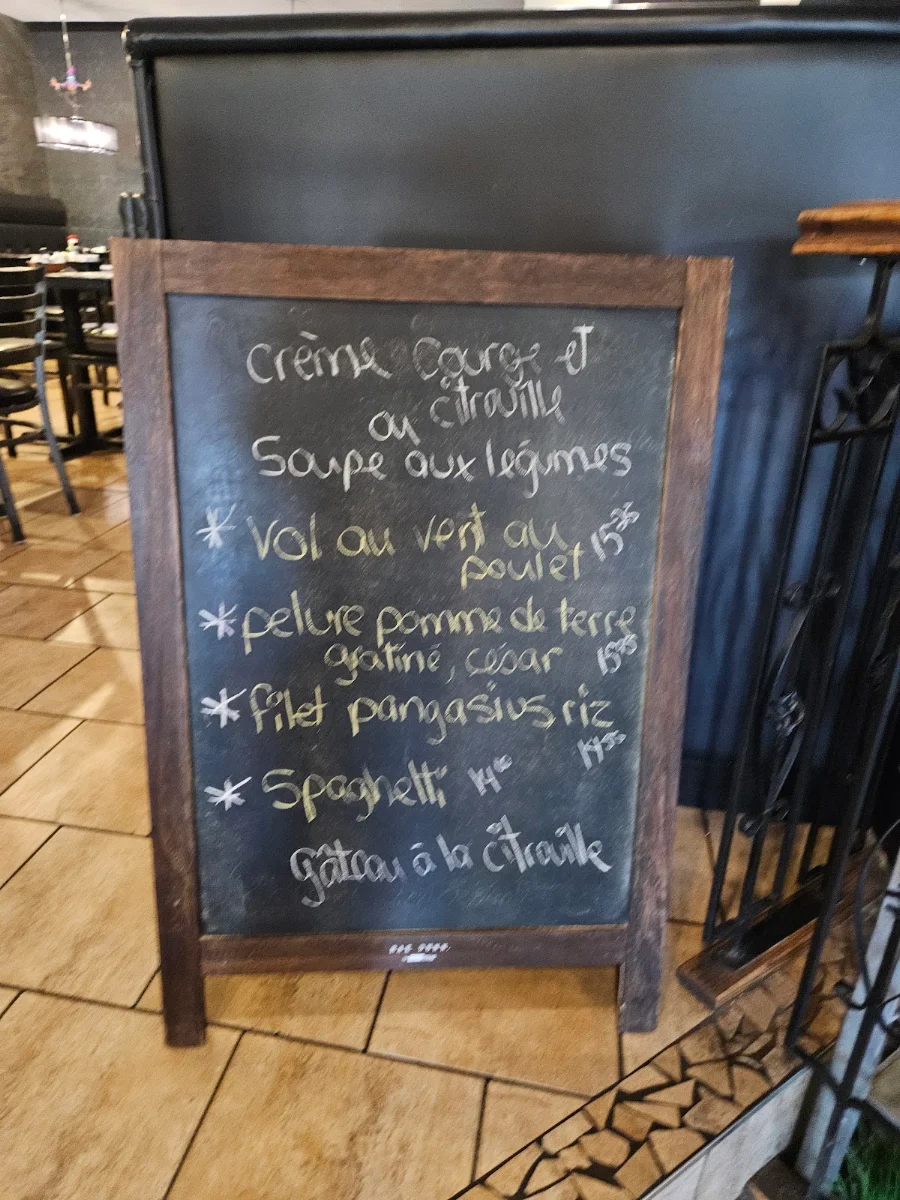 crème courge et
citrouille
ou
Soupe aux légumes
* Vol au vent au
poulet
* pelure pomme de terre
gratiné, césar
* filet pangasius riz
* Spaghetti
gâteau à la citrouille